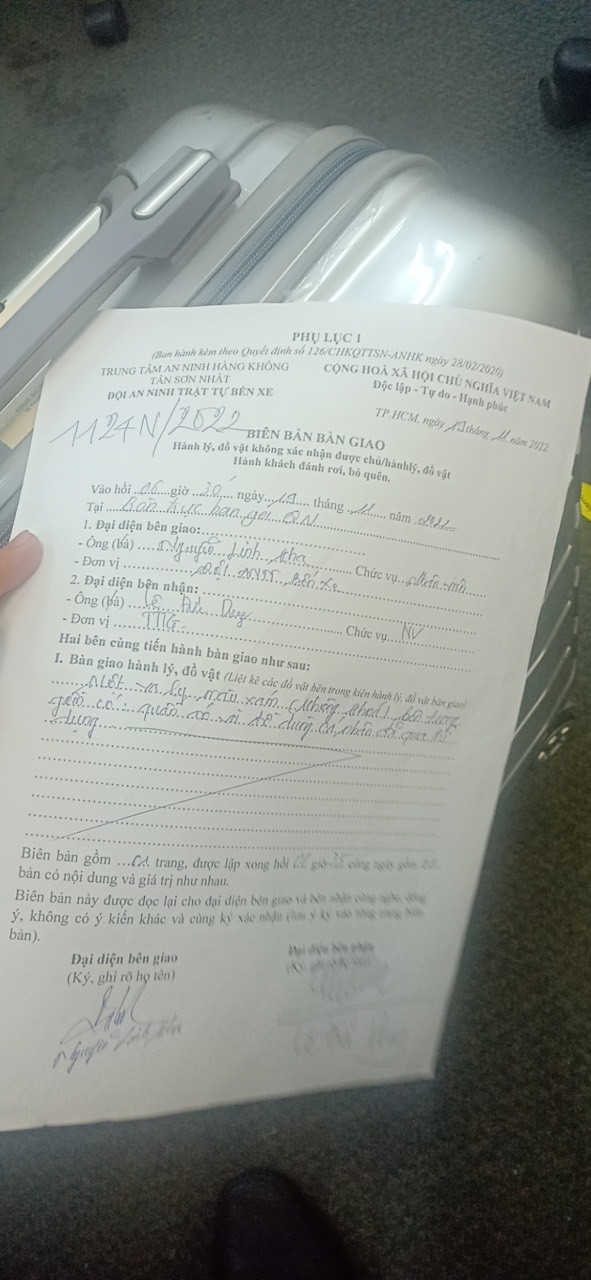 PHỤ LỤC 1
(Ban hành kèm theo Quyết định số 126/CHKQTTSN-ANHK ngày 28/02/2020)
TRUNG TÂM AN NINH HÀNG KHÔNG
TÂN SƠN NHẤT
ĐỘI AN NINH TRẬT TỰ BẾN XE
CỘNG HOÀ XÃ HỘI CHỦ NGHĨA VIỆT NAM
Độc lập - Tự do - Hạnh phúc
1124N/2022
TP.HCM, ngày tháng 11 năm 2022
BIÊN BẢN BÀN GIAO
Hành lý, đồ vật không xác nhận được chủ/hànhlý, đồ vật
Hành khách đánh rơi, bỏ quên.
Vào hồi 06 giờ 30 ngày tháng 11 năm
Tại
1. Đại diện bên giao:
- Ông (bà) Nguyễn Linh Chức vụ
- Đơn vị Đội ANTT bến xe
2. Đại diện bên nhận:
- Ông (bà) Lê Chức vụ NV
- Đơn vị
Hai bên cùng tiến hành bàn giao như sau:
I. Bàn giao hành lý, đồ vật (Liệt kê các đồ vật bên trong kiện hành lý, đồ vật bàn giao)
Một va ly màu xám (không khoá) bên trong
gồm có: quần áo và đồ dùng cá nhân đã qua sử
dụng
Biên bản gồm 01 trang, được lập xong hồi giờ cùng ngày gồm
bản có nội dung và giá trị như nhau.
Biên bản này được đọc lại cho đại diện bên giao và bên nhận cùng nghe, đồng
ý, không có ý kiến khác và cùng ký xác nhận (lưu ý ký vào từng trang biên
bản).
Đại diện bên giao
(Ký, ghi rõ họ tên)
Đại diện bên nhận
Nguyễn Linh